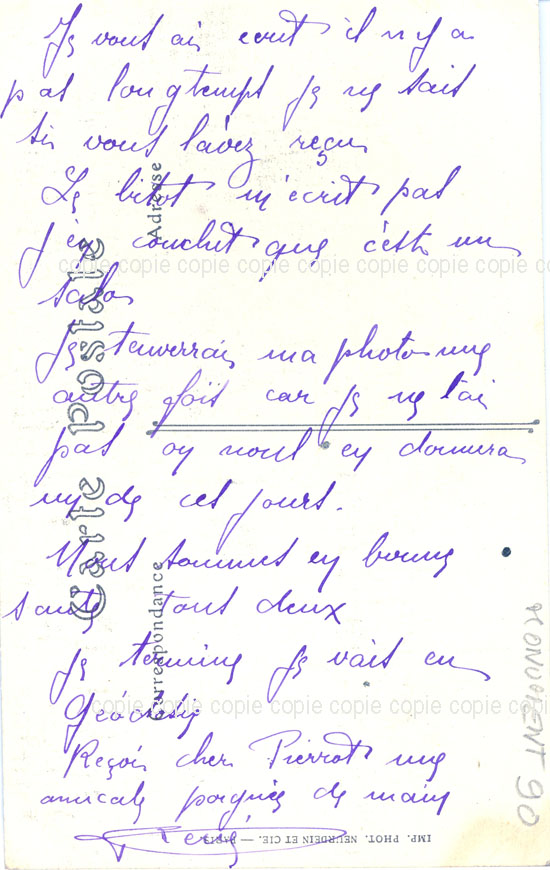 Je vous ai ecrit il n y a
pas longtemps je ne sait
si vous l'avez reçu
Le m'écrit pas
j'en que c'est un
salo
Je t'enverrai ma photo une
autre fois car je ne l'ai
pas on nous en donnera
un de ces jours.
Nous sommes en bonne
santé tous deux
Je termine je vais en
Géodesie
Reçois cher Pierrot une
amicale poignée de main
Carte postale
Correspondance
Adresse
IMP. PHOT. NEURDEIN ET CIE. — PARIS.
MONUMENT 90
copie copie copie copie copie copie copie copie copie
copie copie copie copie copie copie copie copie